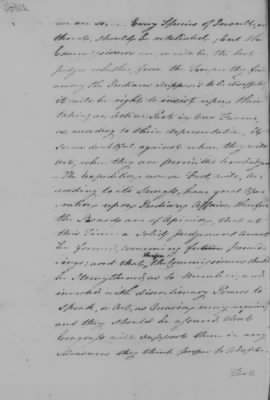 we are so. — Every Species of Insult, or
threat, should be retaliated; but the
Commissioners are, or will be the best
judges whether, from the Temper they find
among the Indians suppos'd to be disaffected
it will be right to insist upon their
taking an Active Part in Our Favour,
as according to their representation, it
seems doubtful against whom they will
act, when they are permitted
— The Expedition now on Foot, will, ac-
cording to its Success, have great Ope-
ration upon Indian Affairs, therefore
the Board are of Opinion, that at
this Time a Solid Judgment cannot
be formed, concerning future proceed-
ings; and that therefore the Commissioners should
be strengthened as to Number, and
invested with discretionary Powers to
Speak, or Act, as Occasion may require,
and they should be assured that
Congress will support them in any
Measures they think proper to adopt.
That